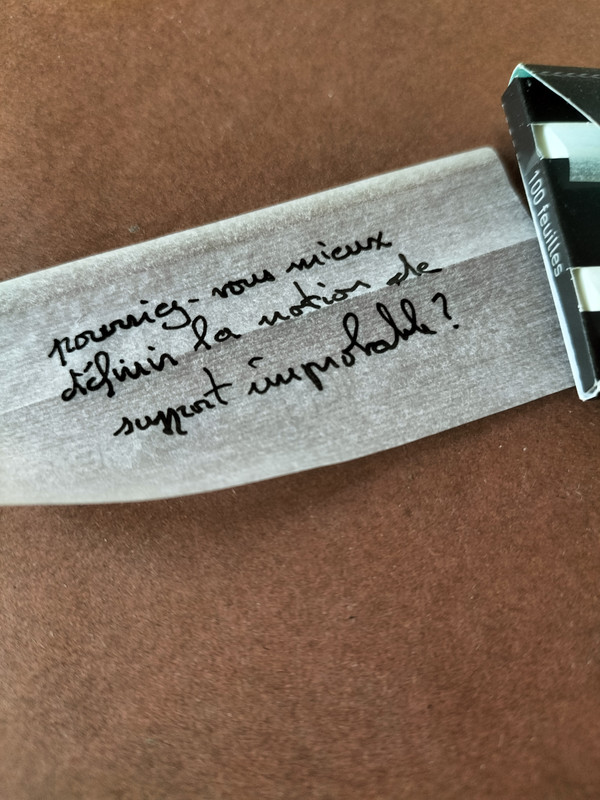 pourriez-vous mieux
définir la notion de
support improbable?
100 feuilles